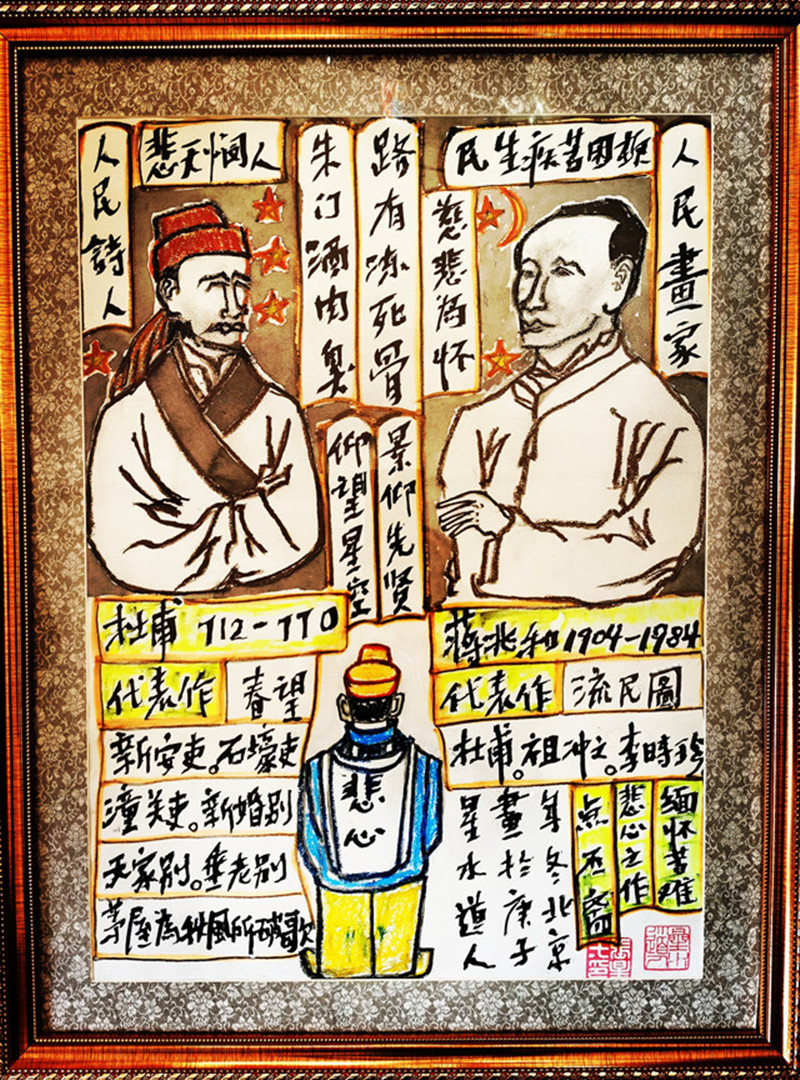 人民詩人
悲天悯人
朱门酒肉臭
路有冻死骨
民生疾苦困頓
慈悲为怀
人民畫家
仰望星空
景仰先贤
杜甫 712-770
代表作 春望
新安吏。石壕吏
潼关吏。新婚别
无家别。垂老别
茅屋為秋風所破歌
悲心
蒋兆和1904-1984
代表作 流民圖
杜甫。祖冲之。李時珍
星水道人
畫於庚子
年冬北京
悲心之作
缅怀苦难